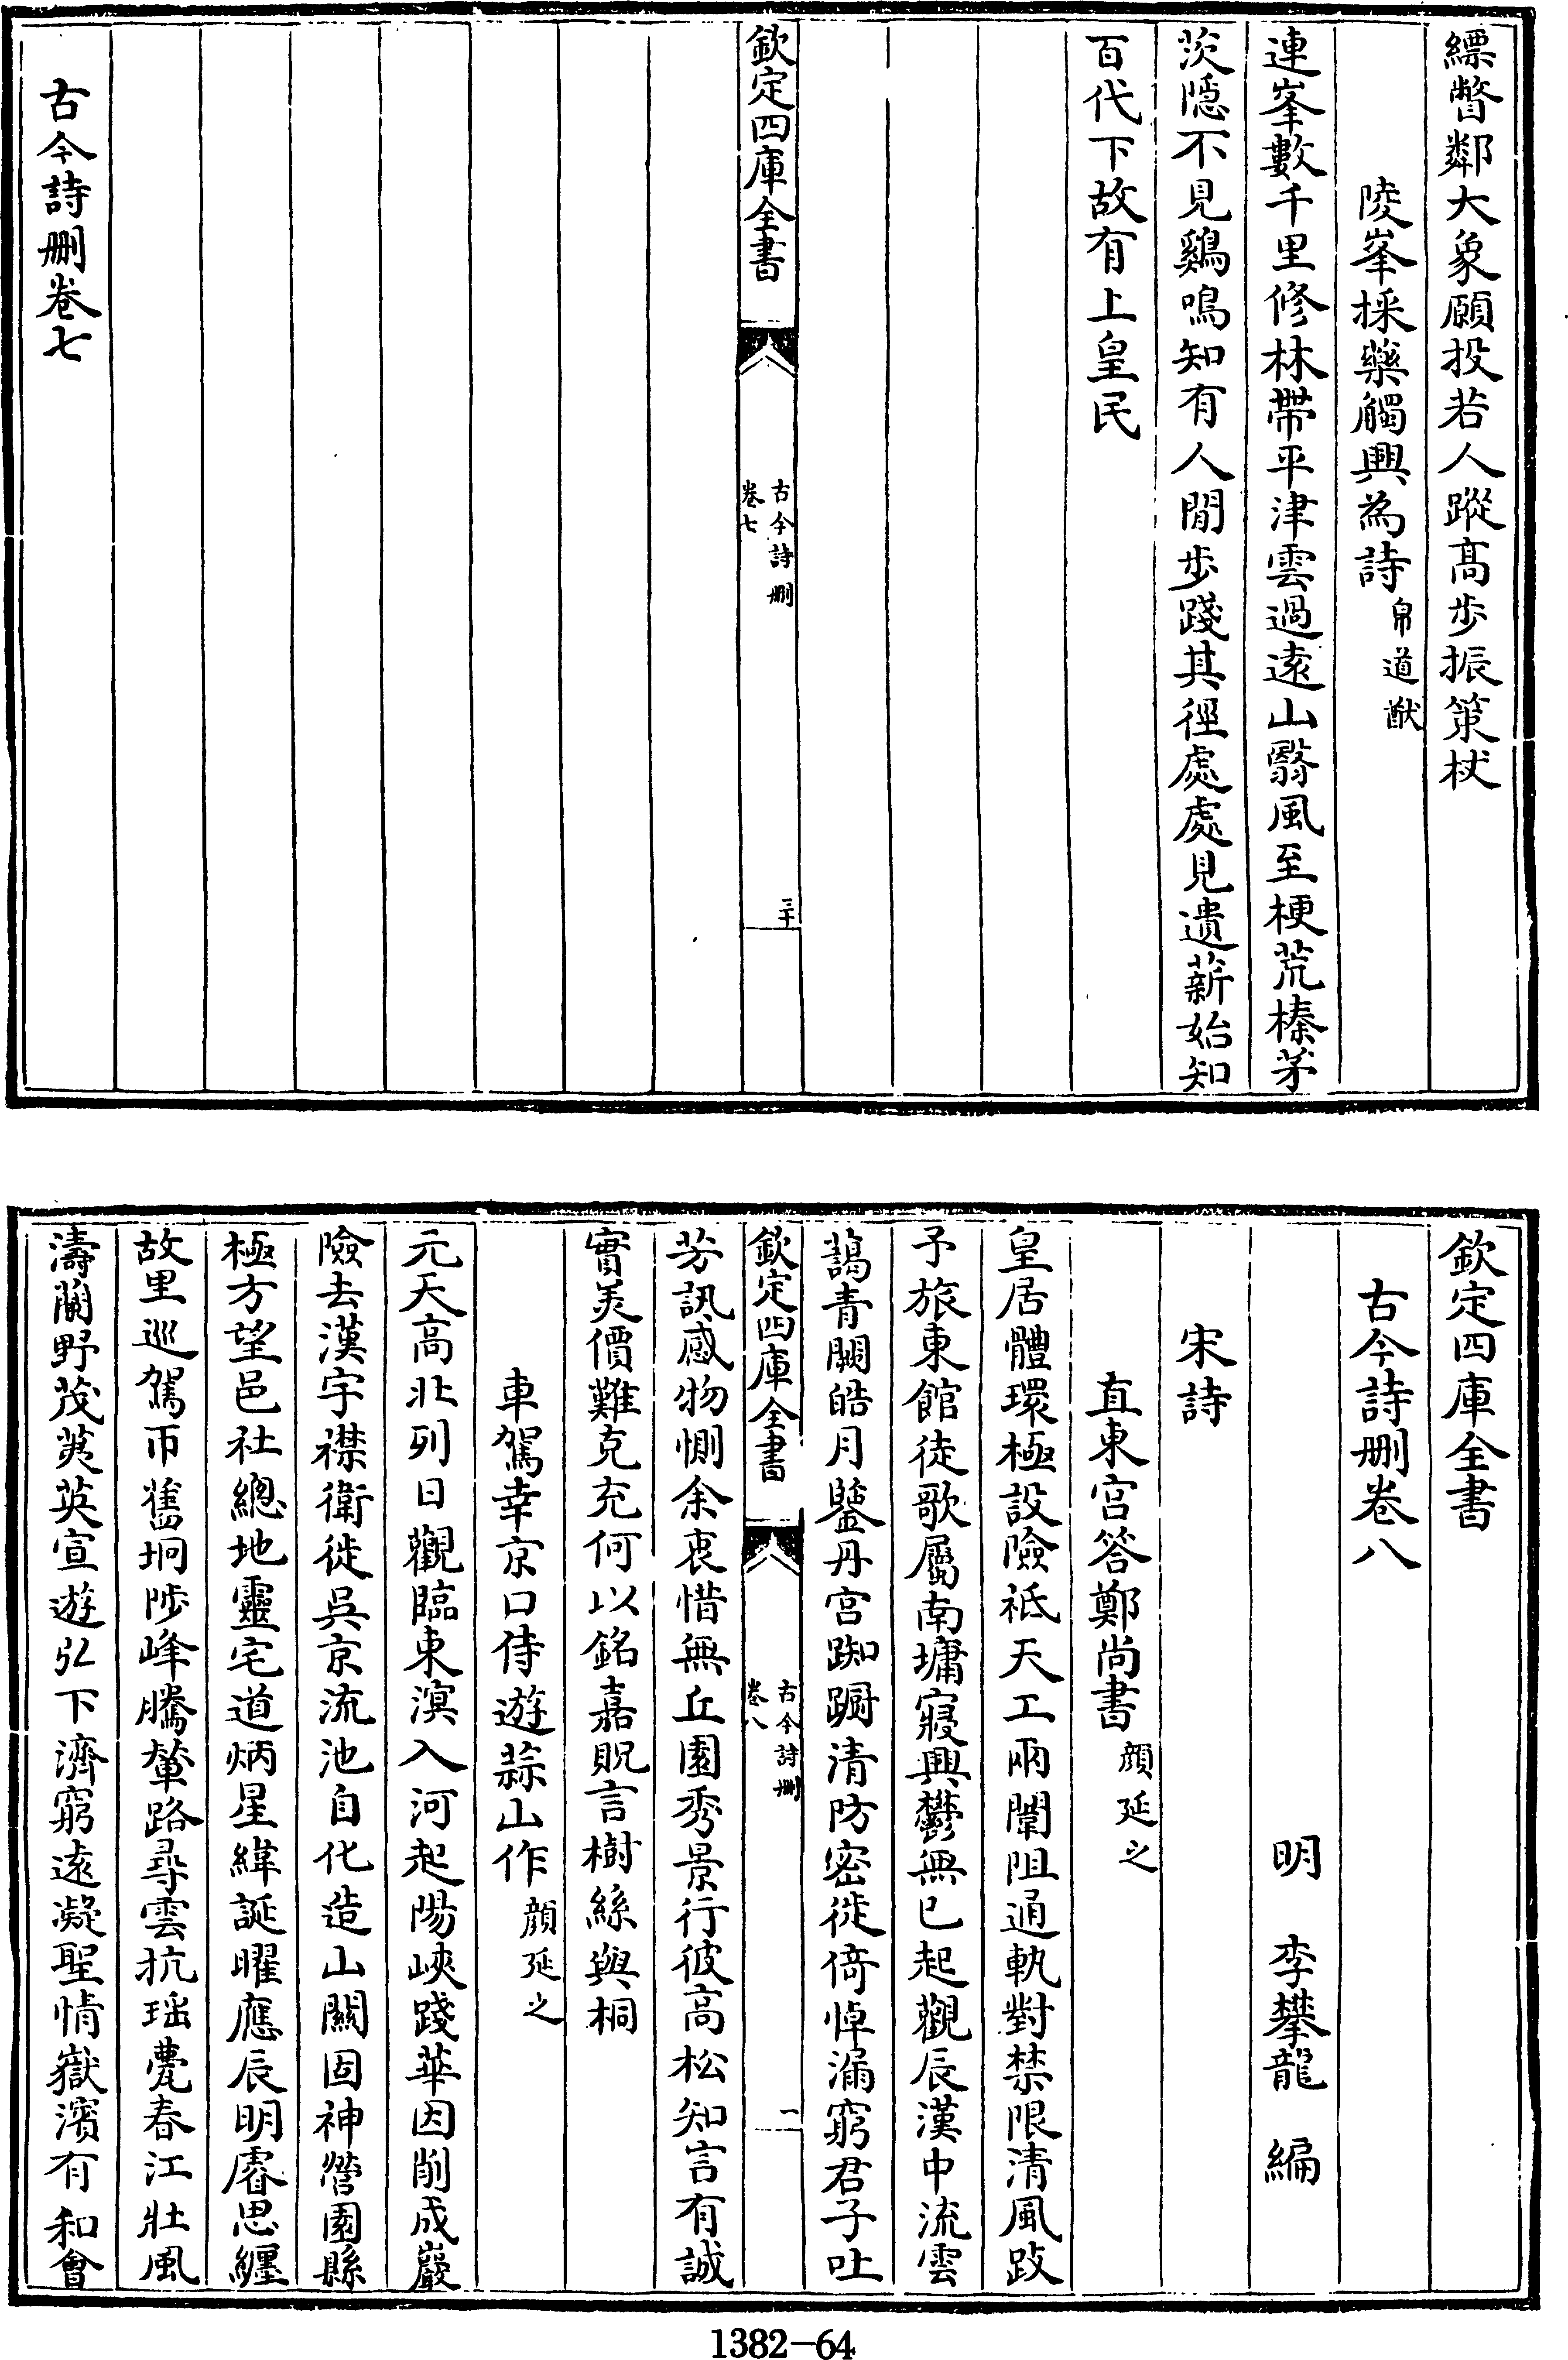 縹瞥鄰大象願投若人蹤髙步振策杖
陵峯採藥觸興為詩帛道猷
連峯數千里修林帶平津雲過遠山翳風至梗荒榛茅
茨隱不見鷄鳴知有人閒步踐其徑處處見遺薪始知
百代下故有上皇民
欽定四庫全書
古今詩刪
卷七
三十
古今詩刪卷七
欽定四庫全書
古今詩刪卷八
明 李攀龍 編
宋詩
直東宫答鄭尚書顔延之
皇居體環極設險祗天工兩闈阻通軌對禁限清風跂
予旅東館徒歌屬南墉寢興鬱無已起觀辰漢中流雲
藹青闕皓月鑒丹宫踟蹰清防密徙倚恒漏窮君子吐
欽定四庫全書
古今詩刪
卷八
一
芳訊感物惻余衷惜無丘園秀景行彼高松知言有誠
實美價難克充何以銘嘉貺言樹絲與桐
車駕幸京口侍遊蒜山作顔延之
元天高北列日觀臨東溟入河起陽峽踐華因削成巖
險去漢宇襟衛徙吳京流池自化造山關固神營園縣
極方望邑社總地靈宅道炳星緯誕曜應辰明睿思纏
故里巡駕帀舊坰陟峰騰輦路尋雲抗瑶甍春江壯風
濤蘭野茂荑英宣遊弘下濟窮遠凝聖情嶽濱有和會
1382-64